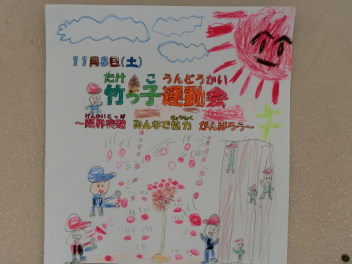 11月8日(土)
たけ こ うんどうかい
竹っ子運動会
げんかいとっぱ きょうりょく
～限界突破 みんなで協力 がんばろう～